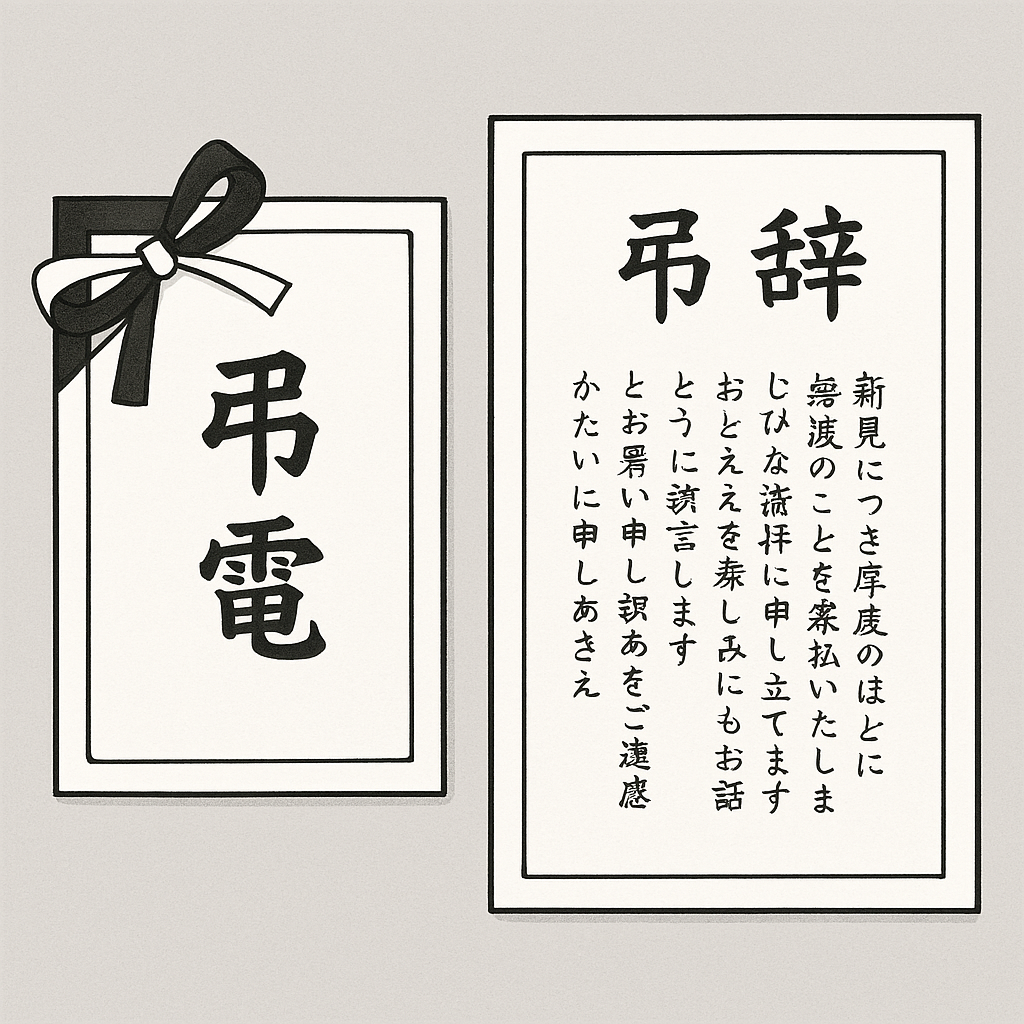 弔電
弔辞
新見につき厚度のほどに
渡のことを払いたしま
しひなに申し立てます
おとええをしにもお話
とうに言します
とお い申しあをご
かたいに申しあさえ